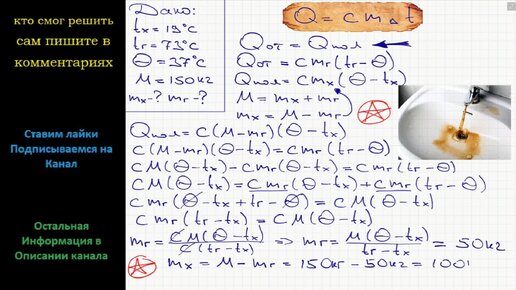 кто смог решить
сам пишите в
комментариях
Ставим лайки
Подписываемся на
Канал
Остальная
Информация в
Описании канала
Дано:
tх = 19°C
tг = 73°C
Θ = 37°C
M = 150кг
mх-? mг-?
Q = cm△t
Qот = Qпол
Qот = cmг(tг-Θ)
Qпол = cmх(Θ-tх)
M = mх + mг
mх = M - mг
Qпол = c(M-mг)(Θ-tх)
c(M-mг)(Θ-tх) = cmг(tг-Θ)
cM(Θ-tх) - cmг(Θ-tх) = cmг(tг-Θ)
cM(Θ-tх) = cmг(Θ-tх) + cmг(tг-Θ)
cmг(Θ-tх+tг-Θ) = cM(Θ-tх)
cmг(tг-tх) = cM(Θ-tх)
mг = cM(Θ-tх)/c(tг-tх) => mг = M(Θ-tх)/tг-tх = 50кг
mх = M - mг = 150кг - 50кг = 100